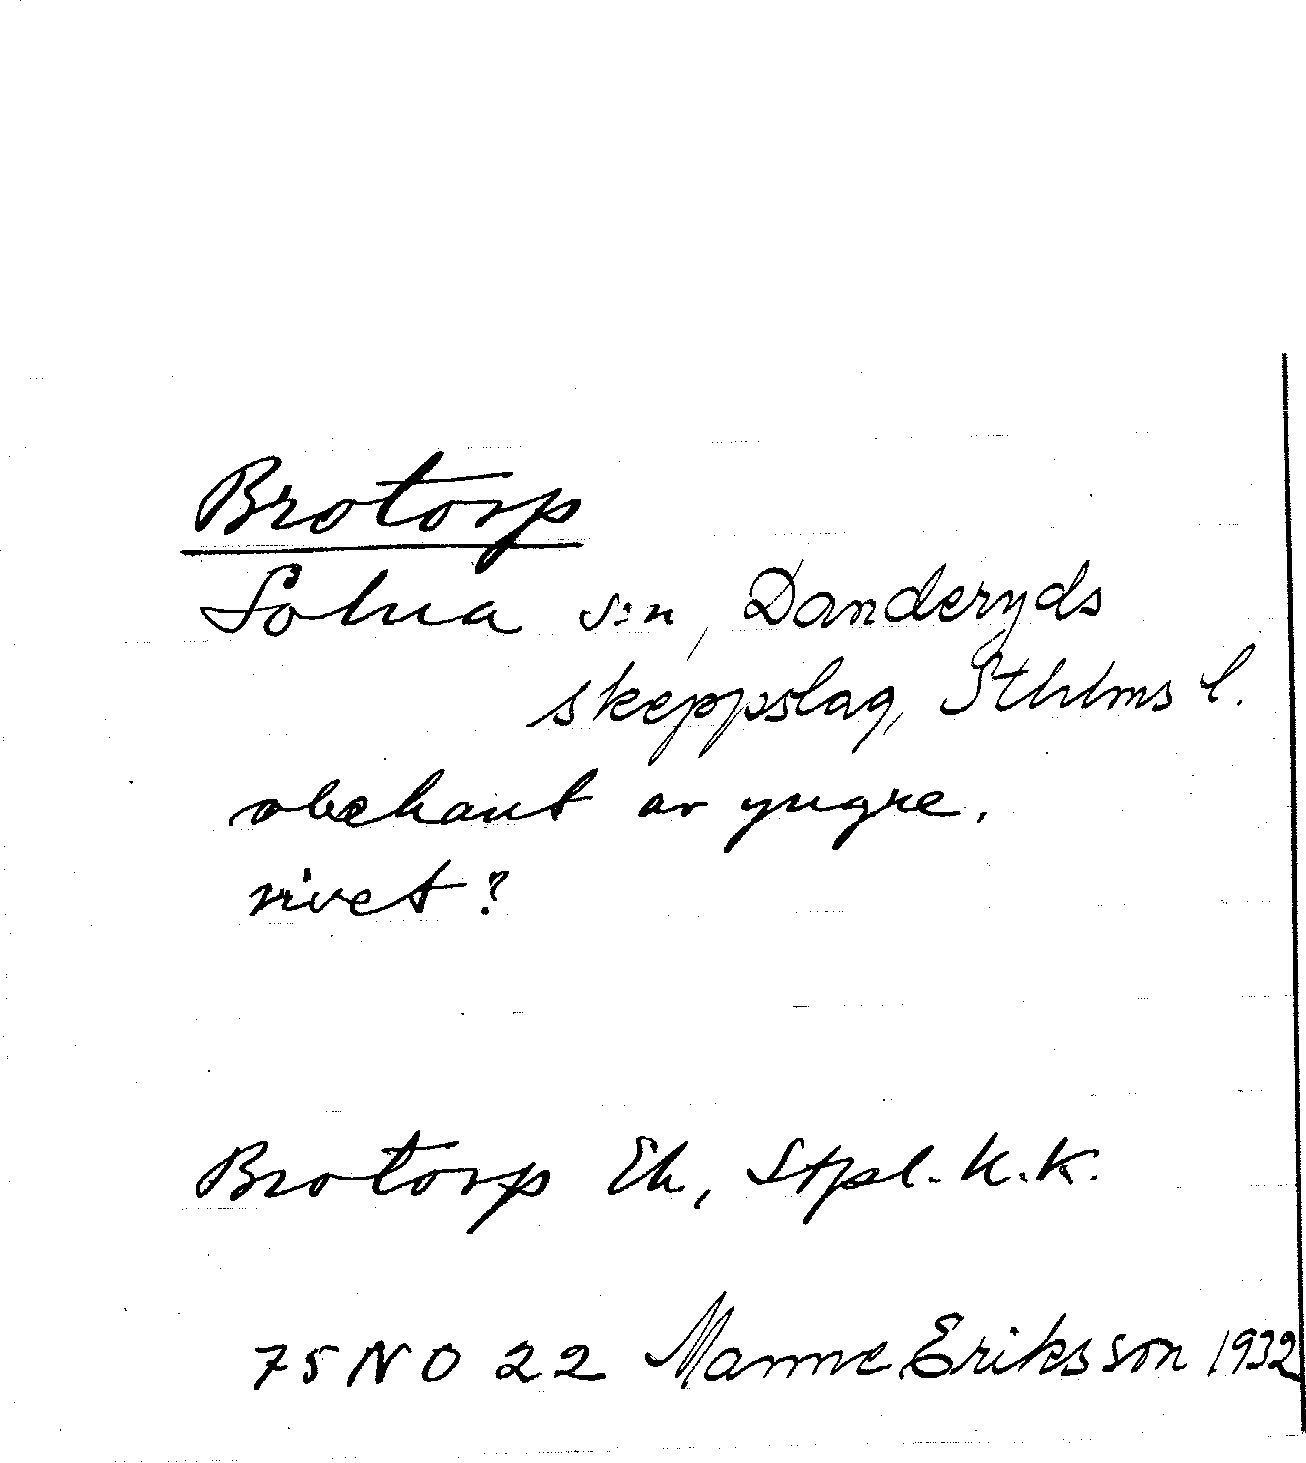 Brotorp
Solna s:n, Danderyds
skeppslag, Sthlms l.
obekant av yngre.
rivet?
Brotorp Ek, Stpl. K.K.
75 NO 22 Manne Eriksson 1932